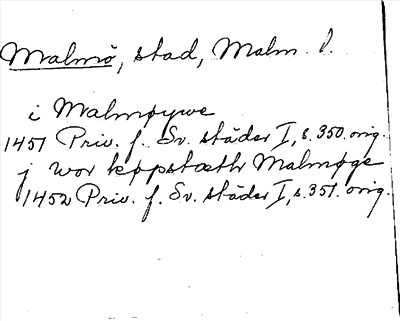 Malmö, stad, Malm. l.
i Malmøywe
1451 Priv. f. Sv. städer I, s. 350. orig.
j wor køpstæth Malmøge
1452 Priv. f. Sv. städer I, s. 351. orig.